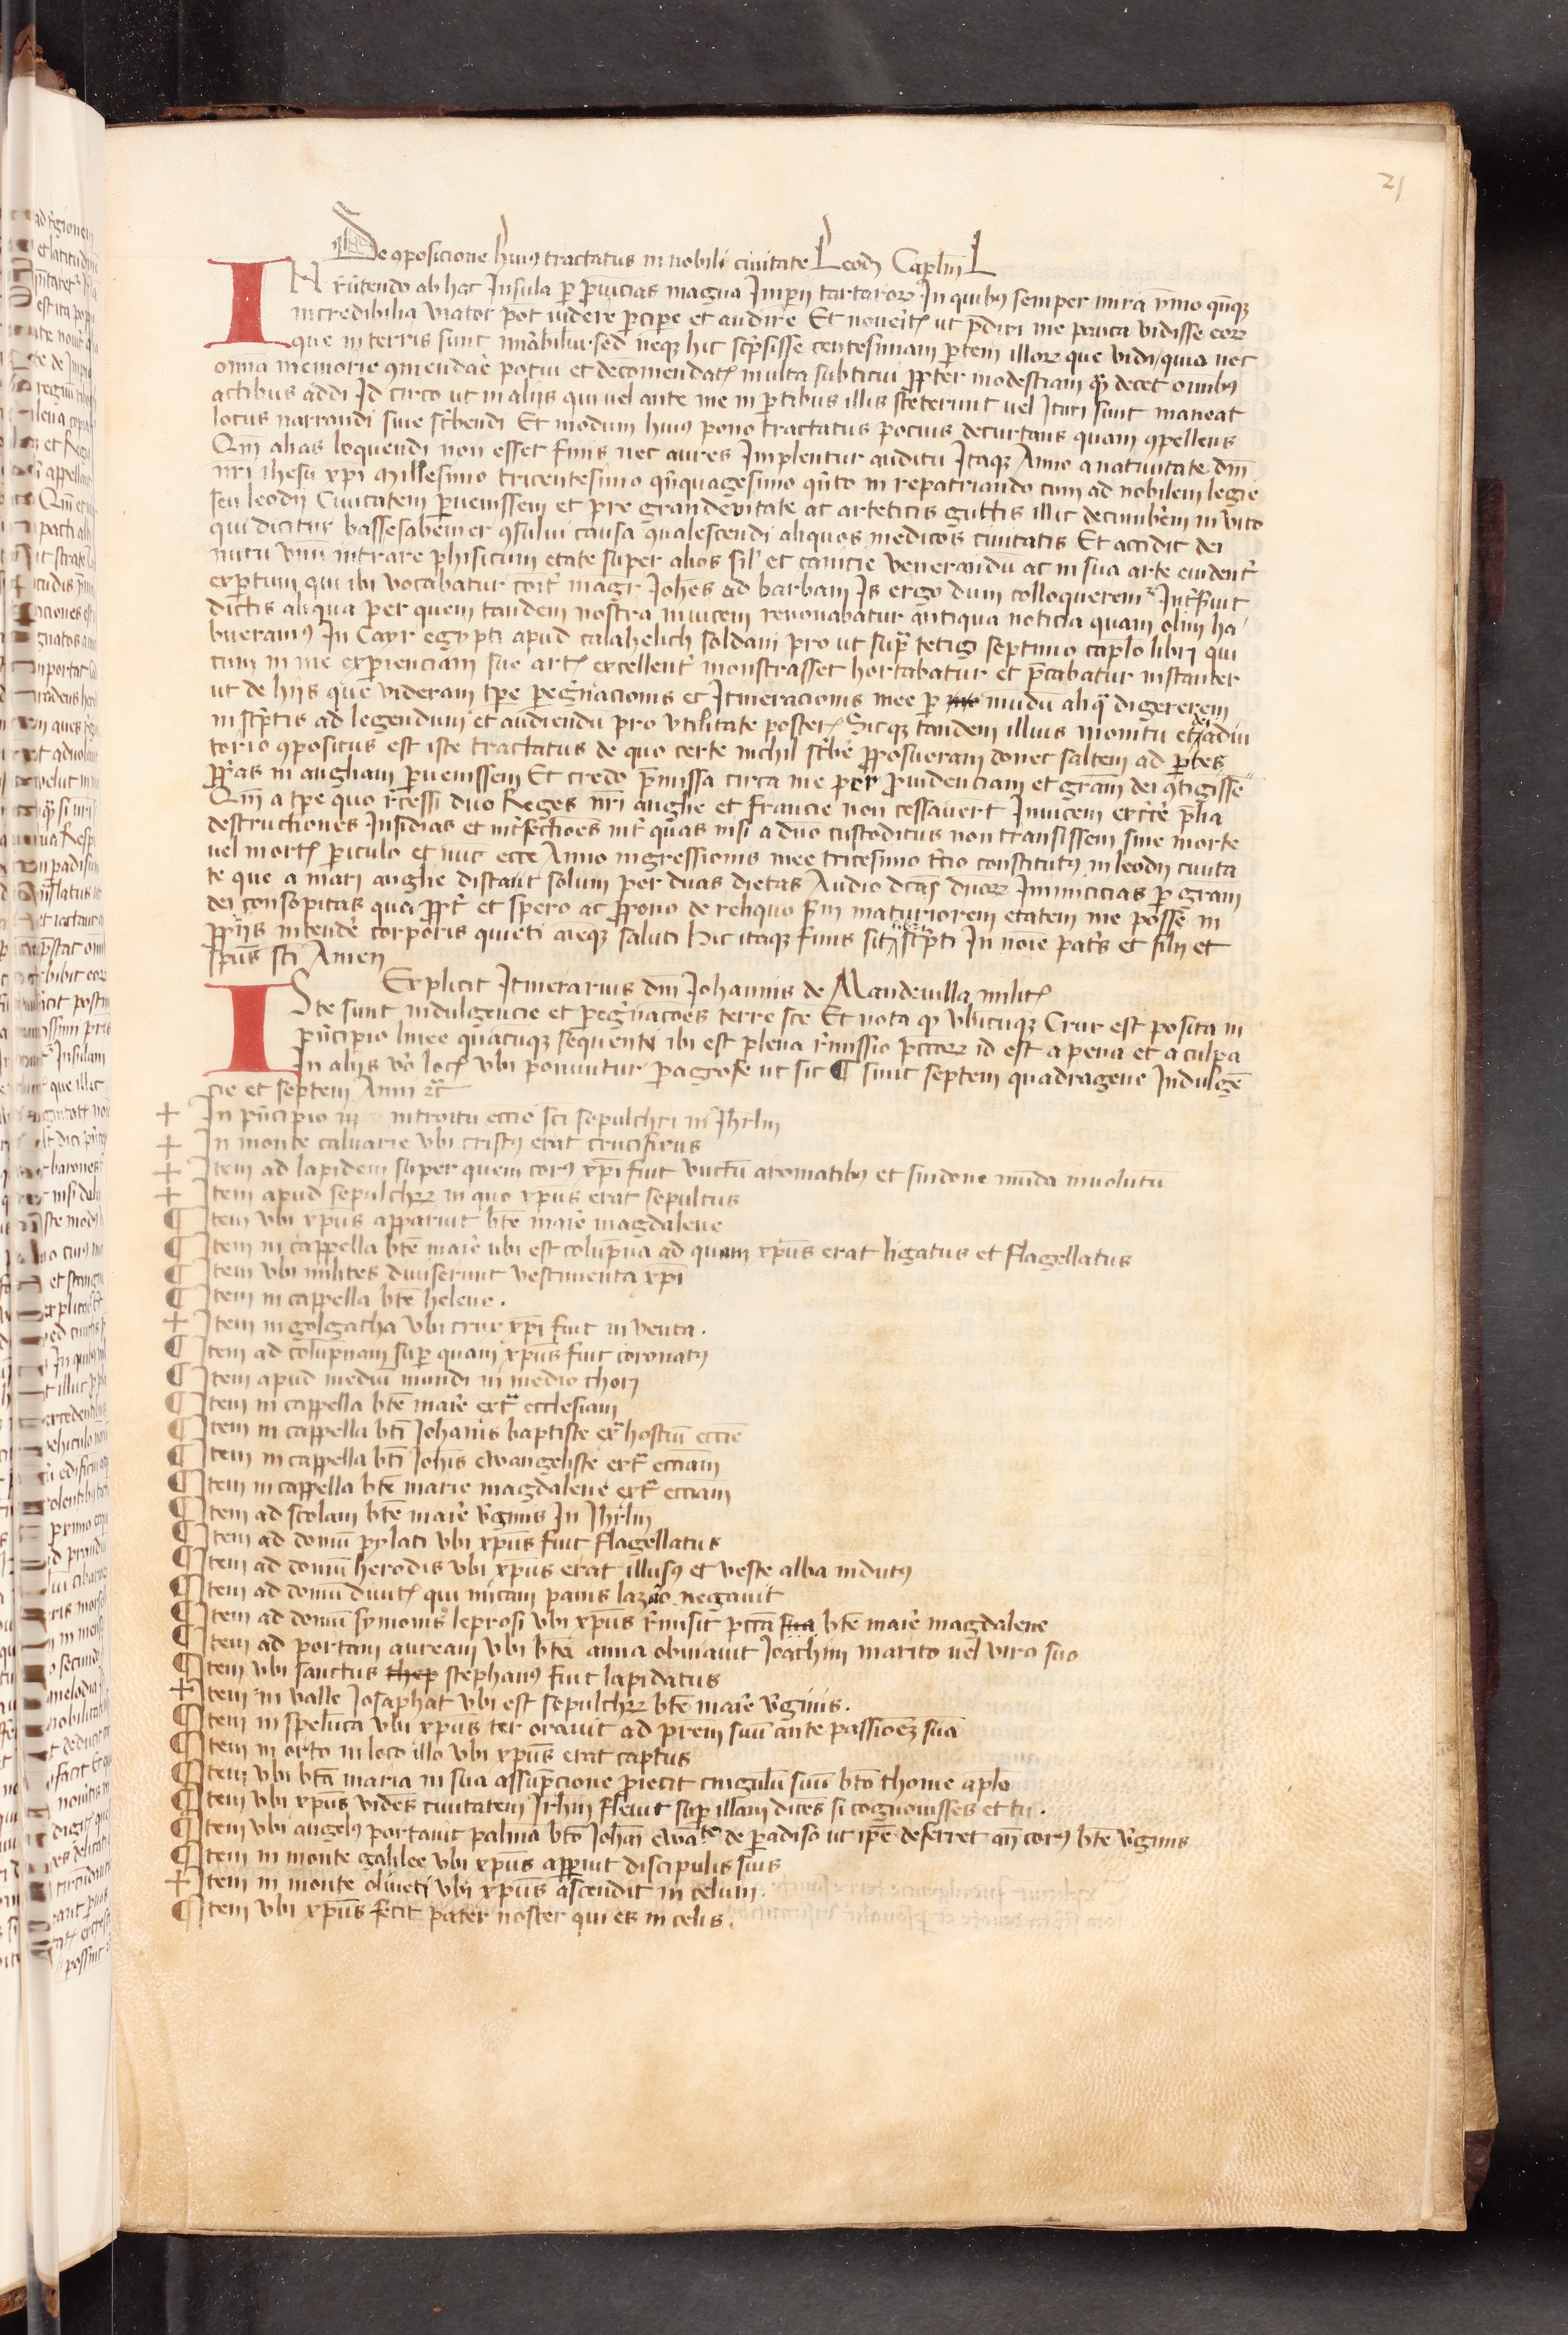 21
De ꝯposicione huiꝰ tractatus in nobili ciuitate Leodij Caplm L
IN reūtendo ab hac Insula per ꝓuincias magna Imperij tartaroꝝ In quibꝰ semper mira nīmo qn̄qꝫ
incredibilia viator pot videre percipe et audire Et noueritis ut p̄dixi me pauca vidisse eoꝝ
que in terris sunt mirabiliū sed neqꝫ hic scp̄sisse centesimam partem illoꝝ que vidi / quia nec
om̄ia memorie ꝯmendare potui et decōmendatis multa subticui ꝓpter modestiam quam decet omībꝰ
actibus addi Id circo ut in alijs qui vel ante me in partibus illis steterunt vel Ituri sunt maneat
locus narrandi siue scribendi Et modum huiꝰ pono tractatus pocius decurtans quam ꝯpellens
Qm̄ alias loquendi non esset finis nec aures Implentur auditu Itaqꝫ Anno a natiuitate dn̄i
nr̄i ihesu xp̄i Millesimo tricentesimo quinquagesimo quīto in repatriando cum ad nobilem legie
seu leodij Ciuitatem peruenissem et pre grandeuitate ac arteticis guttis illic decumberem in vico
qui dicitur bassesabeimer ꝯsului causa ꝯualescendi aliquos medicos ciuitatis Et accidit dei
nutu vnū intrare phisicum etate super alios sil' et canicie venerandū ac in sua arte euidenter
expertum qui ibi vocabatur cōit' magr Joh̄es ad barbam Is ergo dum colloqueremur Interseruit
dictis aliqua per quem tandem nostra inuicem renouabatur antiqua noticia quam olim ha
bueramꝰ In Cayr egypti apud calahelich soldani pro ut supra tetigi septimo caplo libri qui
cum in me experienciam sue artis excellenter monstrasset hortabatur et p̄cabatur instanter
ut de hijs que videram tpe peregrinacionis et Itineracionis mee per mundū aliqua digererem
in scp̄tis ad legendum et audiendū pro vtilitate posteris Sicqꝫ tandem illius monitu et adiu
torio ꝯpositus est iste tractatus de quo certe nichil scribere ꝓposueram donec saltem ad partes
ꝓprias in angliam peruenissem Et credo p̄missa circa me per ꝓuidenciam et graciam dei ꝯtigisse
Qm̄ a tpe quo recessi duo Reges nr̄i anglie et francie non cessauerunt Inuicem exercere p̄lia
destructiones Insidias et interfectiones inter quas nisi a dn̄o custoditus non transissem sine morte
vel mortis periculo et nūc ecce Anno ingressionis mee tricesimo tercio constitutꝰ in leodij ciuita
te que a mari anglie distant solum per duas dietas Audio dictas dn̄oꝝ Inimicicias per gram
dei consopitas qua ꝓpter et spero ac ꝓpono de reliquo scdm maturiorem etatem me posse in
ꝓprijs intendere corporis quieti animeqꝫ saluti Hic itaqꝫ finis sit scp̄ti In noīe patris et filij et
spūs sc̄i Amen
Explicit Itinerarius dn̄i Johannis de Mandeuilla militis
Iste sunt indulgencie et peregrinaciones terre sc̄e Et nota qꝫ vbicumqꝫ Crux est posita in
principio linee quacumqꝫ sequente ibi est plena remissio pctōꝝ id est a pena et a culpa
In alijs vero locis vbi ponuntur paragrafe ut sic ¶ sunt septem quadragene Indulgē
cie et septem Anni etc
+ In principio in introitu eccīe sc̄i sepulchri in Jhrlm
+ In monte caluarie vbi cristꝰ erat crucifixus
+ Item ad lapidem super quem corꝰ xp̄i fuit vnctū aromatibꝰ et sindone mūda inuolutū
+ Item apud sepulchꝝ in quo xp̄us erat sepultus
¶ Item vbi xp̄us apparuit btē marie magdalene
¶ Item in cappella btē marie ubi est columpna ad quam xp̄us erat ligatus et flagellatus
¶ Item vbi milites diuiserunt vestimenta xp̄i
¶ Item in cappella btē helene .
+ Item in golgatha vbi crux xp̄i fuit in venta .
¶ Item ad columpnam super quam xp̄us fuit coronatꝰ
¶ Item apud mediū mundi in medio chori
¶ Item in cappella btē marie extra ecclesiam
¶ Item in cappella bti Johanis baptiste extra hostiū eccīe
¶ Item in cappella bti Joh̄is ewangeliste extra ecciam
¶ Item in cappella btē marie magdalene extra ecciam
¶ Item ad scolam btē marie v'ginis In Jhrlm
¶ Item ad domū pylati vbi xp̄us fuit flagellatus
¶ Item ad domū herodis vbi xp̄us erat illusꝰ et veste alba indutꝰ
¶ Item ad domū diuitis qui micam panis lazaro negauit
¶ Item ad domū symonis leprosi vbi xp̄us remisit pctā sua btē marie magdalene
¶ Item ad portam auream vbi btā anna obuiauit Joachim marito vel viro suo
¶ Item vbi sanctus thep stephanꝰ fuit lapidatus
+ Item in valle Josaphat vbi est sepulchꝝ btē marie v'ginis .
¶ Item in spelūca vbi xp̄us ter orauit ad prem suū ante passionēꝫ suā
¶ Item in orto in loco illo vbi xp̄us erat captus
¶ Item vbi btā maria in sua assūpcione proiecit cingulū suū btō thome aplo
¶ Item vbi xp̄us videns ciuitatem Jrlm fleuit super illam dicēs si cognouisses et tu .
¶ Item vbi angelꝰ portauit palmā btō Joh̄ani ewāte de paradiso ut ip̄e deferret an̄ corꝰ btē v'ginis
¶ Item in monte galilee vbi xp̄us apparuit discipulis suis
+ Item in monte oliueti vbi xp̄us ascendit in celum .
¶ Item vbi xp̄us fecit pater noster qui es in celis .